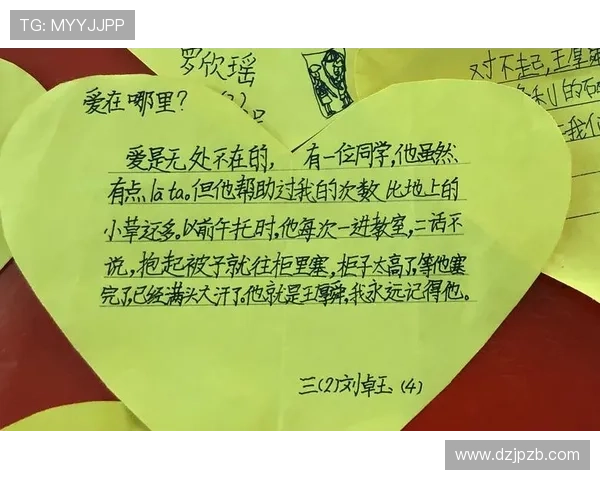 TG: MYYJJPP
罗欣瑶
对不起,王厚舜
爱在哪里?
爱是无处不在的, 有一位同学,他虽然
有点lā ta。但他帮助过我的次数 比地上的
小草还多。以前午托时,他每次一进教室,二话不
说,抱起被子就往柜里塞,柜子太高了,等他塞
完了,已经满头大汗了。他就是王厚舜,我永远记得他。
三(2)刘卓玉 (4)
www.dzjpzb.com